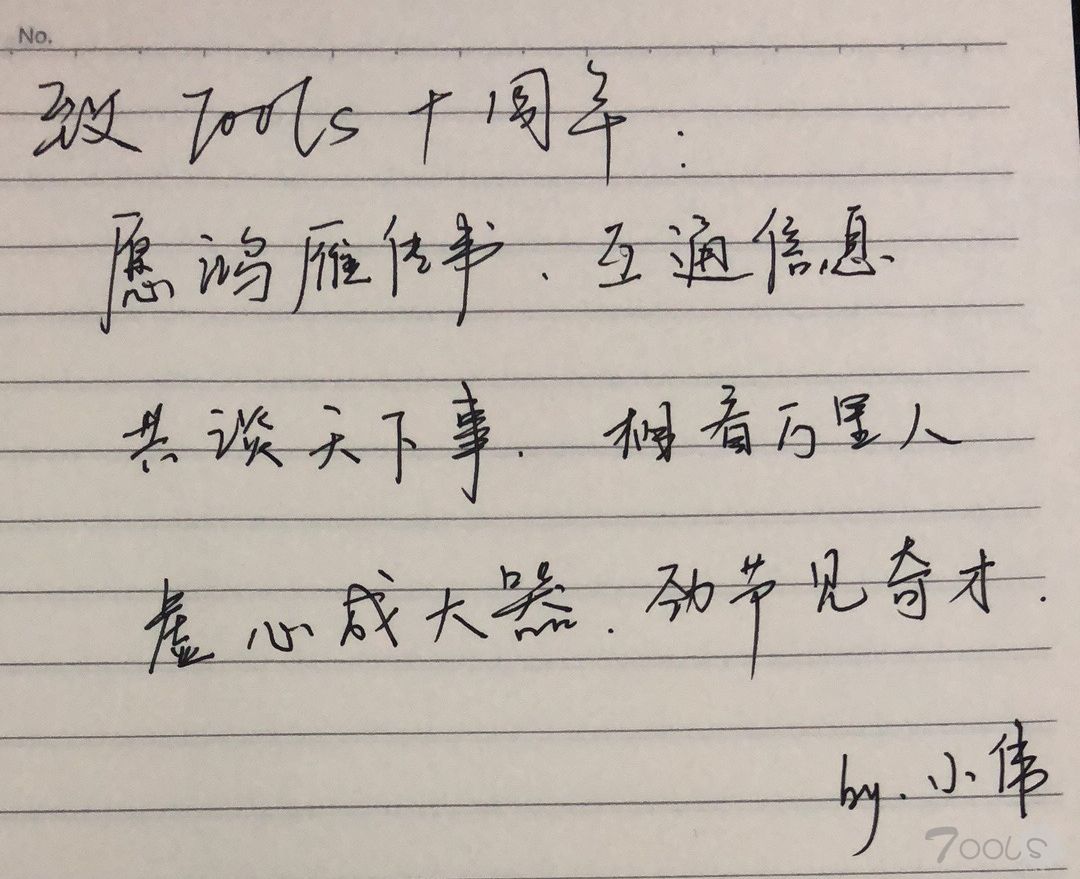 No.
致 7ools 十周年:
愿鸿雁传书.互通信息.
共谈天下事. 相看万里人
虚心成大器.劲节见奇才.
by.小伟
7OOLS